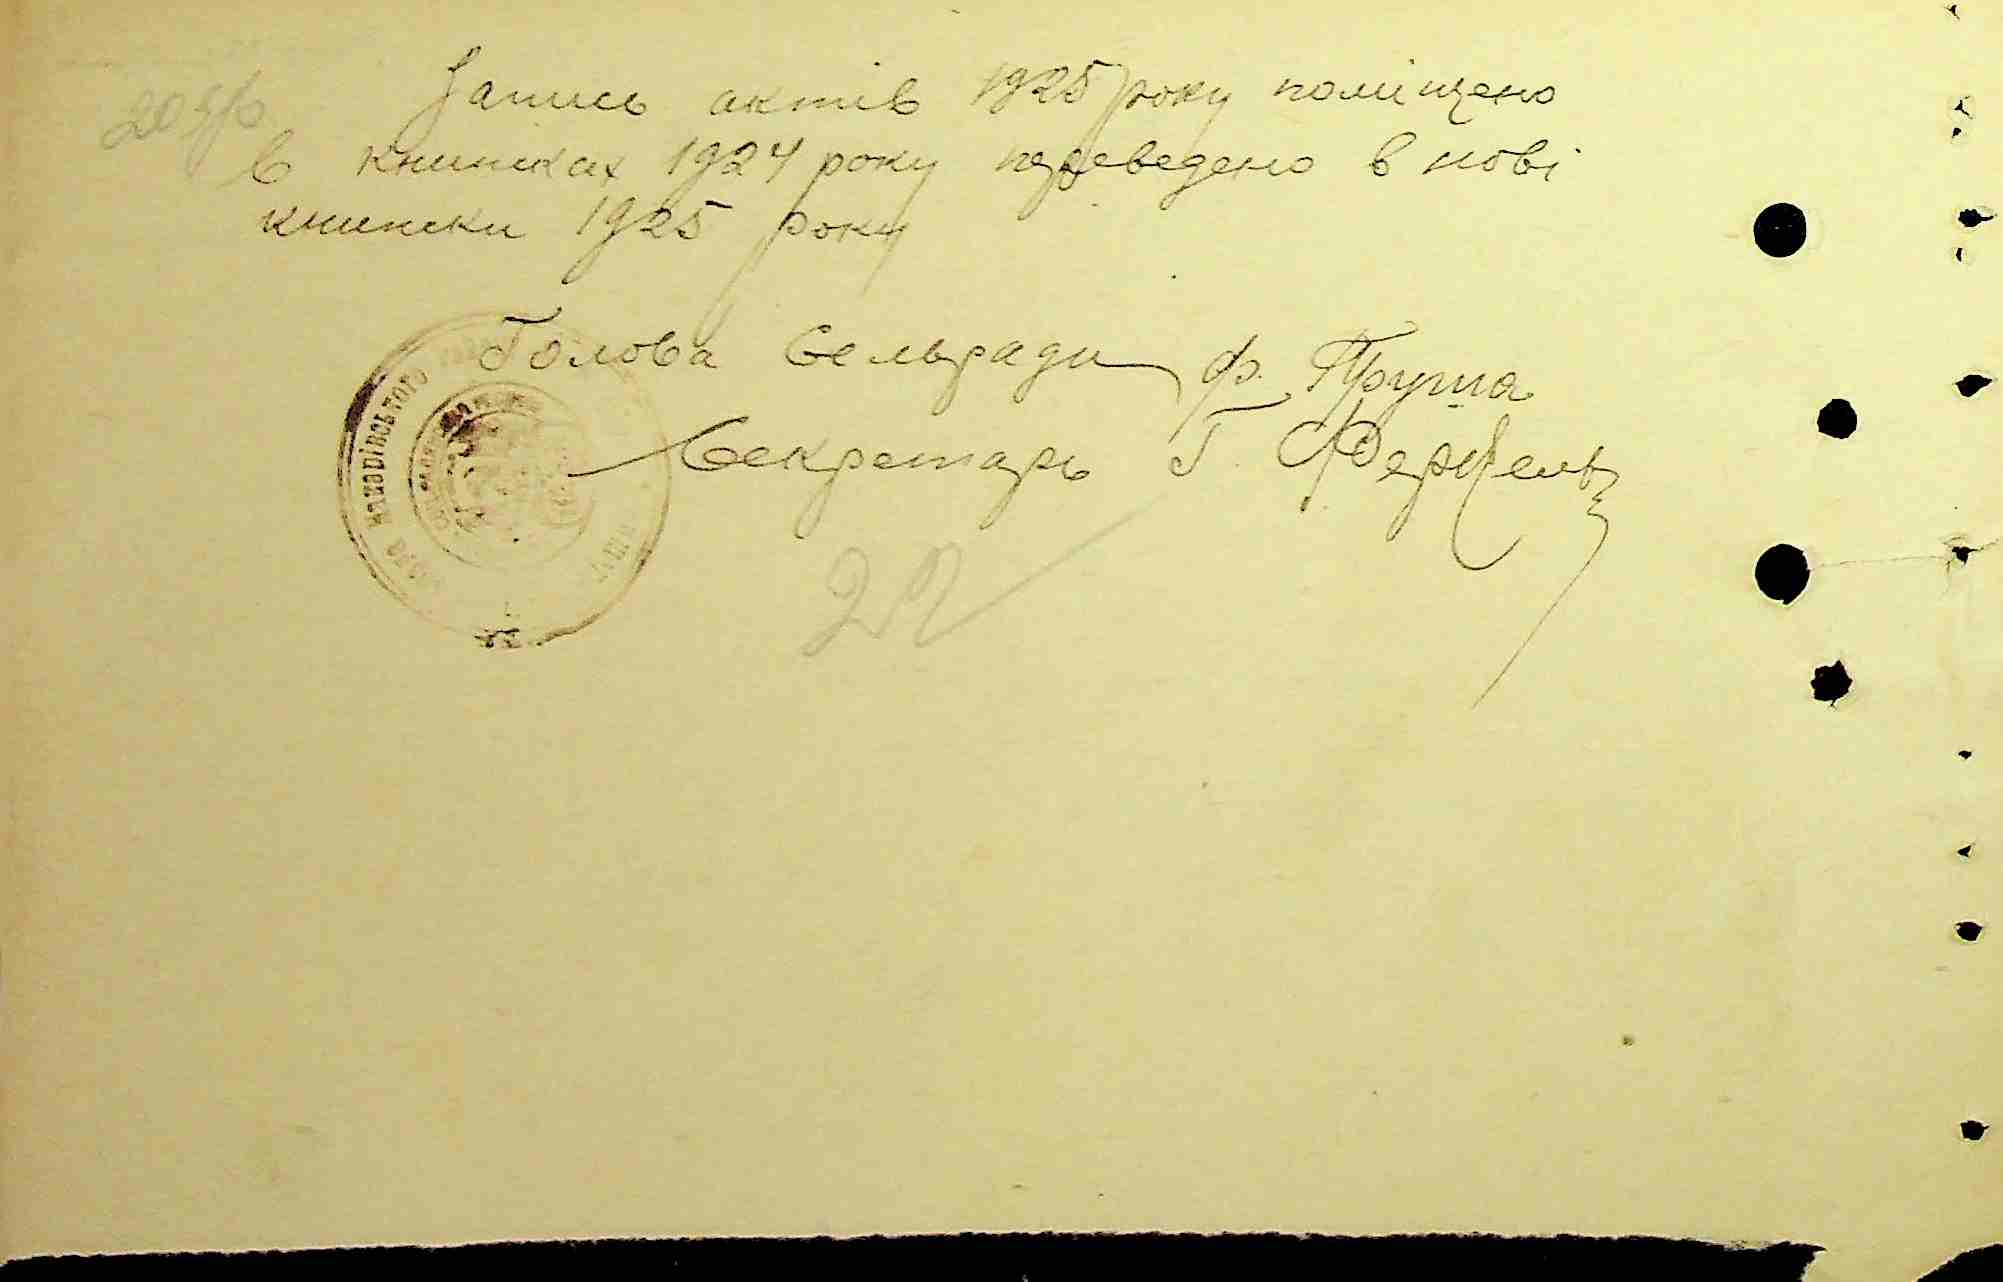 Запись актів 1925 року поміщено
в книжках 1924 року переведено в нові
книжки 1925 року
Голова Сельради Ф. Груша
Секретарь Г.